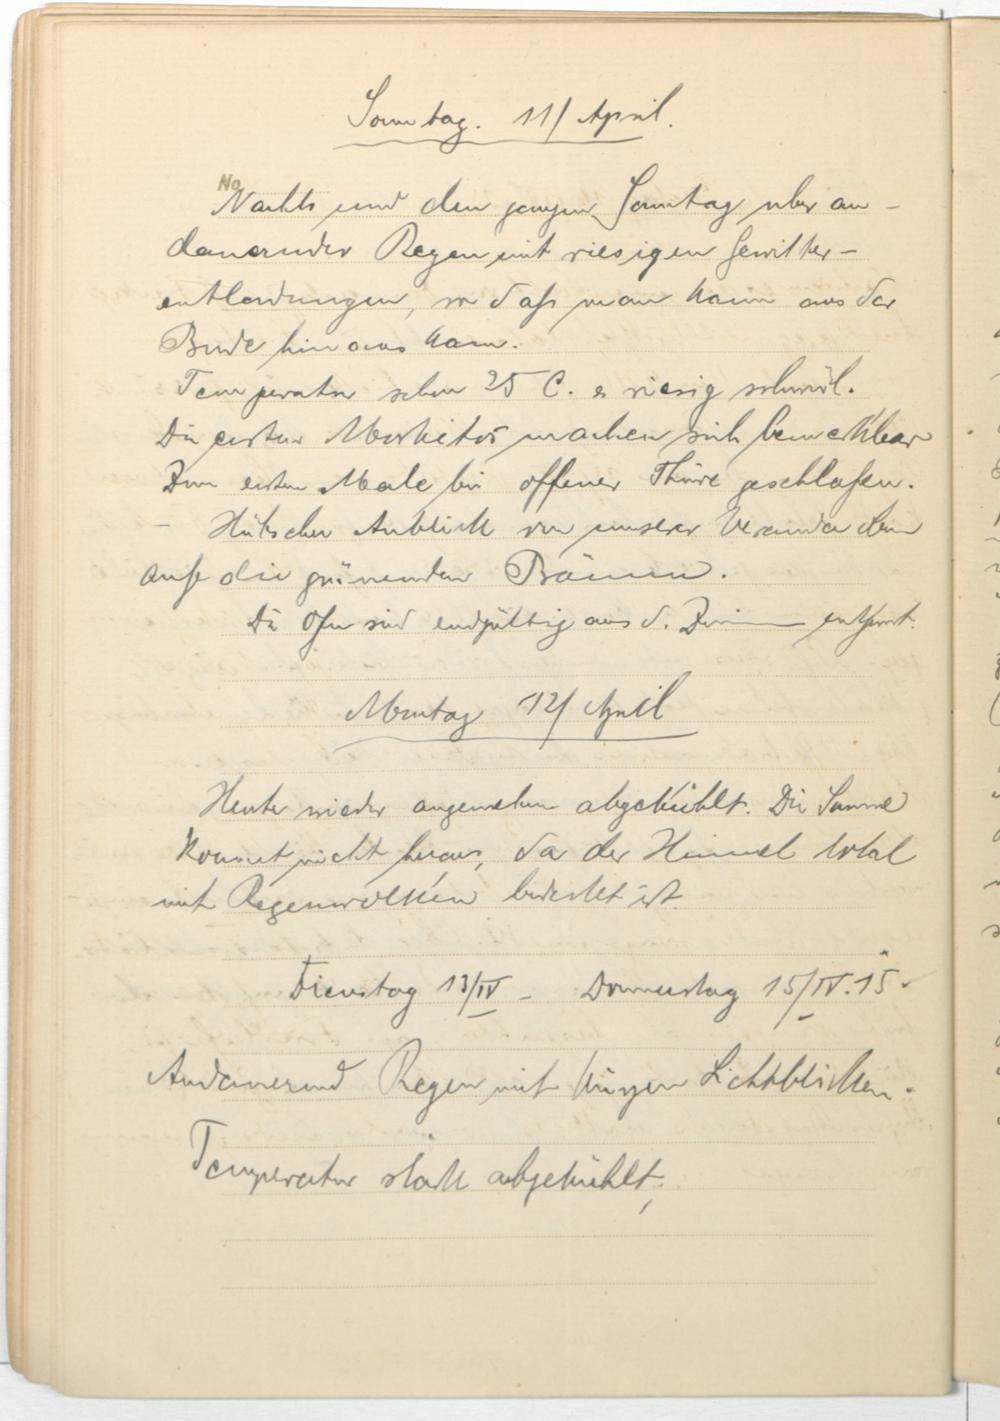 Sonntag. 11/ April.
No
Nachts und den ganzen Sonntag über an-
dauernder Regen mit riesigen Gewitter-
entladungen, so daß man kaum aus der
Bude hinaus kam.
Temperatur schon 25 C. es riesig schwül.
Die ersten Moskitos machen sich bemerkbar
Zum ersten Male bei offener Thüre geschlafen.
– Hübscher Anblick von unserer Veranda
aufs die grünenden Bäume.
Die Öfen sind endgültig aus d. Zimmern entfernt.
Montag 12/ April
Heute wieder angenehm abgekühlt. Die Sonne
kommt nicht heraus, da der Himmel total
mit Regenwolken bedeckt ist.
Dienstag 13/IV – Donnerstag 15/IV.15.
Andauernd Regen mit kurzen Lichtblicken.
Temperatur stark abgekühlt.